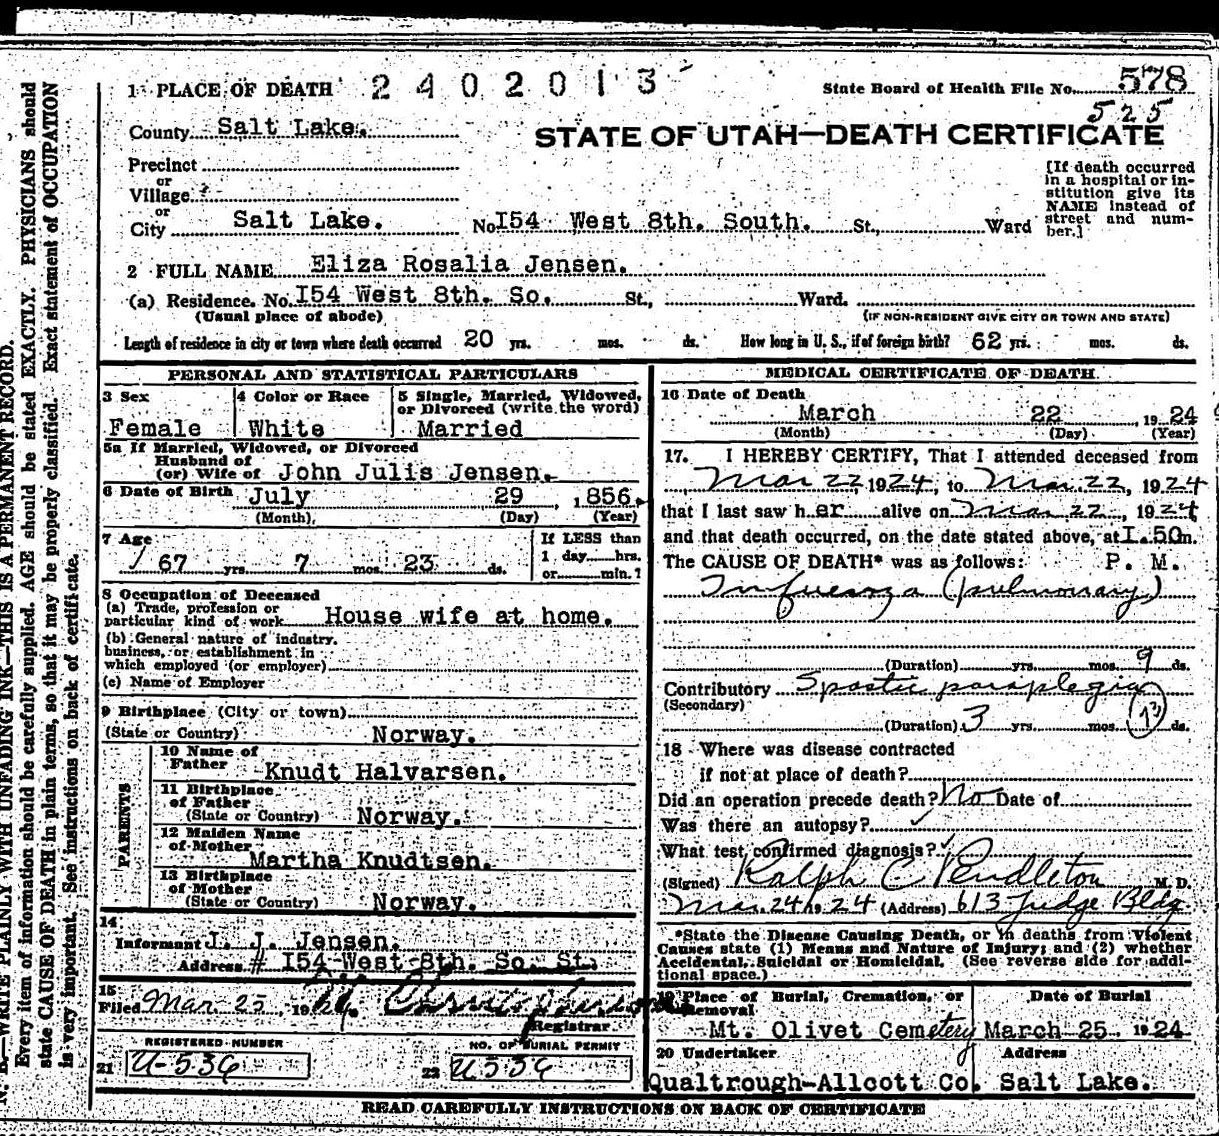 1 PLACE OF DEATH 2402013
State Board of Health File No. 578
525
County Salt Lake.
STATE OF UTAH—DEATH CERTIFICATE
Precinct
or
Village
or
City Salt Lake. No. I54 West 8th. South. St., Ward
[If death occurred
in a hospital or in-
stitution give its
NAME instead of
street and num-
ber.]
2 FULL NAME Eliza Rosalia Jensen.
(a) Residence. No. I54 West 8th. So. St., Ward.
(Usual place of abode) (IF NON-RESIDENT GIVE CITY OR TOWN AND STATE)
Length of residence in city or town where death occurred 20 yrs. mos. ds. How long in U. S., if of foreign birth? 62 yrs. mos. ds.
PERSONAL AND STATISTICAL PARTICULARS
3 Sex
Female
4 Color or Race
White
5 Single, Married, Widowed,
or Divorced (write the word)
Married
5a If Married, Widowed, or Divorced
Husband of
(or) Wife of John Julis Jensen.
6 Date of Birth July 29 , 1856.
(Month) (Day) (Year)
7 Age
67 yrs. 7 mos. 23 ds.
If LESS than
1 day hrs.
or min.?
8 Occupation of Deceased
(a) Trade, profession or
particular kind of work House wife at home.
(b) General nature of industry.
business, or establishment in
which employed (or employer)
(c) Name of Employer
9 Birthplace (City or town)
(State or Country) Norway.
PARENTS
10 Name of
Father Knudt Halvarsen.
11 Birthplace
of Father
(State or Country) Norway.
12 Maiden Name
of Mother
Martha Knudtsen.
13 Birthplace
of Mother
(State or Country) Norway.
14
Informant J. J. Jensen.
Address # I54 West 8th. So. St.
15
Filed Mar. 25, 1924.
Registrar
REGISTERED NUMBER
21 U-536
NO. OF BURIAL PERMIT
22 U536
MEDICAL CERTIFICATE OF DEATH
16 Date of Death
March 22 , 1924
(Month) (Day) (Year)
17. I HEREBY CERTIFY, That I attended deceased from
Mar 22, 1924, to Mar. 22, 1924
that I last saw her alive on Mar 22, 1924,
and that death occurred, on the date stated above, at I.50m.
The CAUSE OF DEATH* was as follows: P. M.
Influenza (pulmonary)
(Duration) yrs. mos. 9 ds.
Contributory Spastic paraplegia
(Secondary)
(Duration) 3 yrs. mos. ds.
18 Where was disease contracted
if not at place of death?
Did an operation precede death? No Date of
Was there an autopsy?
What test confirmed diagnosis?
(Signed) Ralph C Pendleton M. D.
Mar. 24 1924 (Address) 613 Judge Bldg
*State the Disease Causing Death, or in deaths from Violent
Causes state (1) Means and Nature of Injury; and (2) whether
Accidental, Suicidal or Homicidal. (See reverse side for addi-
tional space.)
19 Place of Burial, Cremation, or
Removal
Mt. Olivet Cemetery
Date of Burial
March 25 1924
20 Undertaker
Qualtrough-Allcott Co.
Address
Salt Lake.
READ CAREFULLY INSTRUCTIONS ON BACK OF CERTIFICATE
N. B.—WRITE PLAINLY WITH UNFADING INK—THIS IS A PERMANENT RECORD.
Every item of information should be carefully supplied. AGE should be stated EXACTLY. PHYSICIANS should
state CAUSE OF DEATH in plain terms, so that it may be properly classified. Exact statement of OCCUPATION
is very important. See instructions on back of certificate.